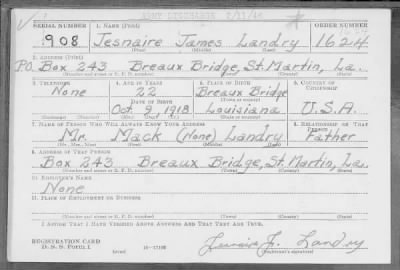 ARMY DISCHARGE
SERIAL NUMBER 1. NAME (Print) ORDER NUMBER
908 Jesnaire James Landry 1624
(First) (Middle) (Last)
2. ADDRESS (Print)
P.O. Box 243 Breaux Bridge, St. Martin, La.
(Number and street or R. F. D. number) (Town) (County) (State)
3. TELEPHONE 4. AGE IN YEARS 5. PLACE OF BIRTH 6. COUNTRY OF CITIZENSHIP
None 22 Breaux Bridge
DATE OF BIRTH (Town or county)
Oct. 9 1918 Louisiana U.S.A.
(Mo.) (Day) (Yr.) (State or country)
7. NAME OF PERSON WHO WILL ALWAYS KNOW YOUR ADDRESS 8. RELATIONSHIP OF THAT PERSON
Mr. Mack (None) Landry Father
(Mr., Mrs., Miss) (First) (Middle) (Last)
9. ADDRESS OF THAT PERSON
Box 243 Breaux Bridge, St. Martin, La.
(Number and street or R. F. D. number) (Town) (County) (State)
10. EMPLOYER'S NAME
None
11. PLACE OF EMPLOYMENT OR BUSINESS
(Number and street or R. F. D. number) (Town) (County) (State)
I AFFIRM THAT I HAVE VERIFIED ABOVE ANSWERS AND THAT THEY ARE TRUE.
REGISTRATION CARD
D. S. S. Form 1 (over) Landry
(Registrant's signature)